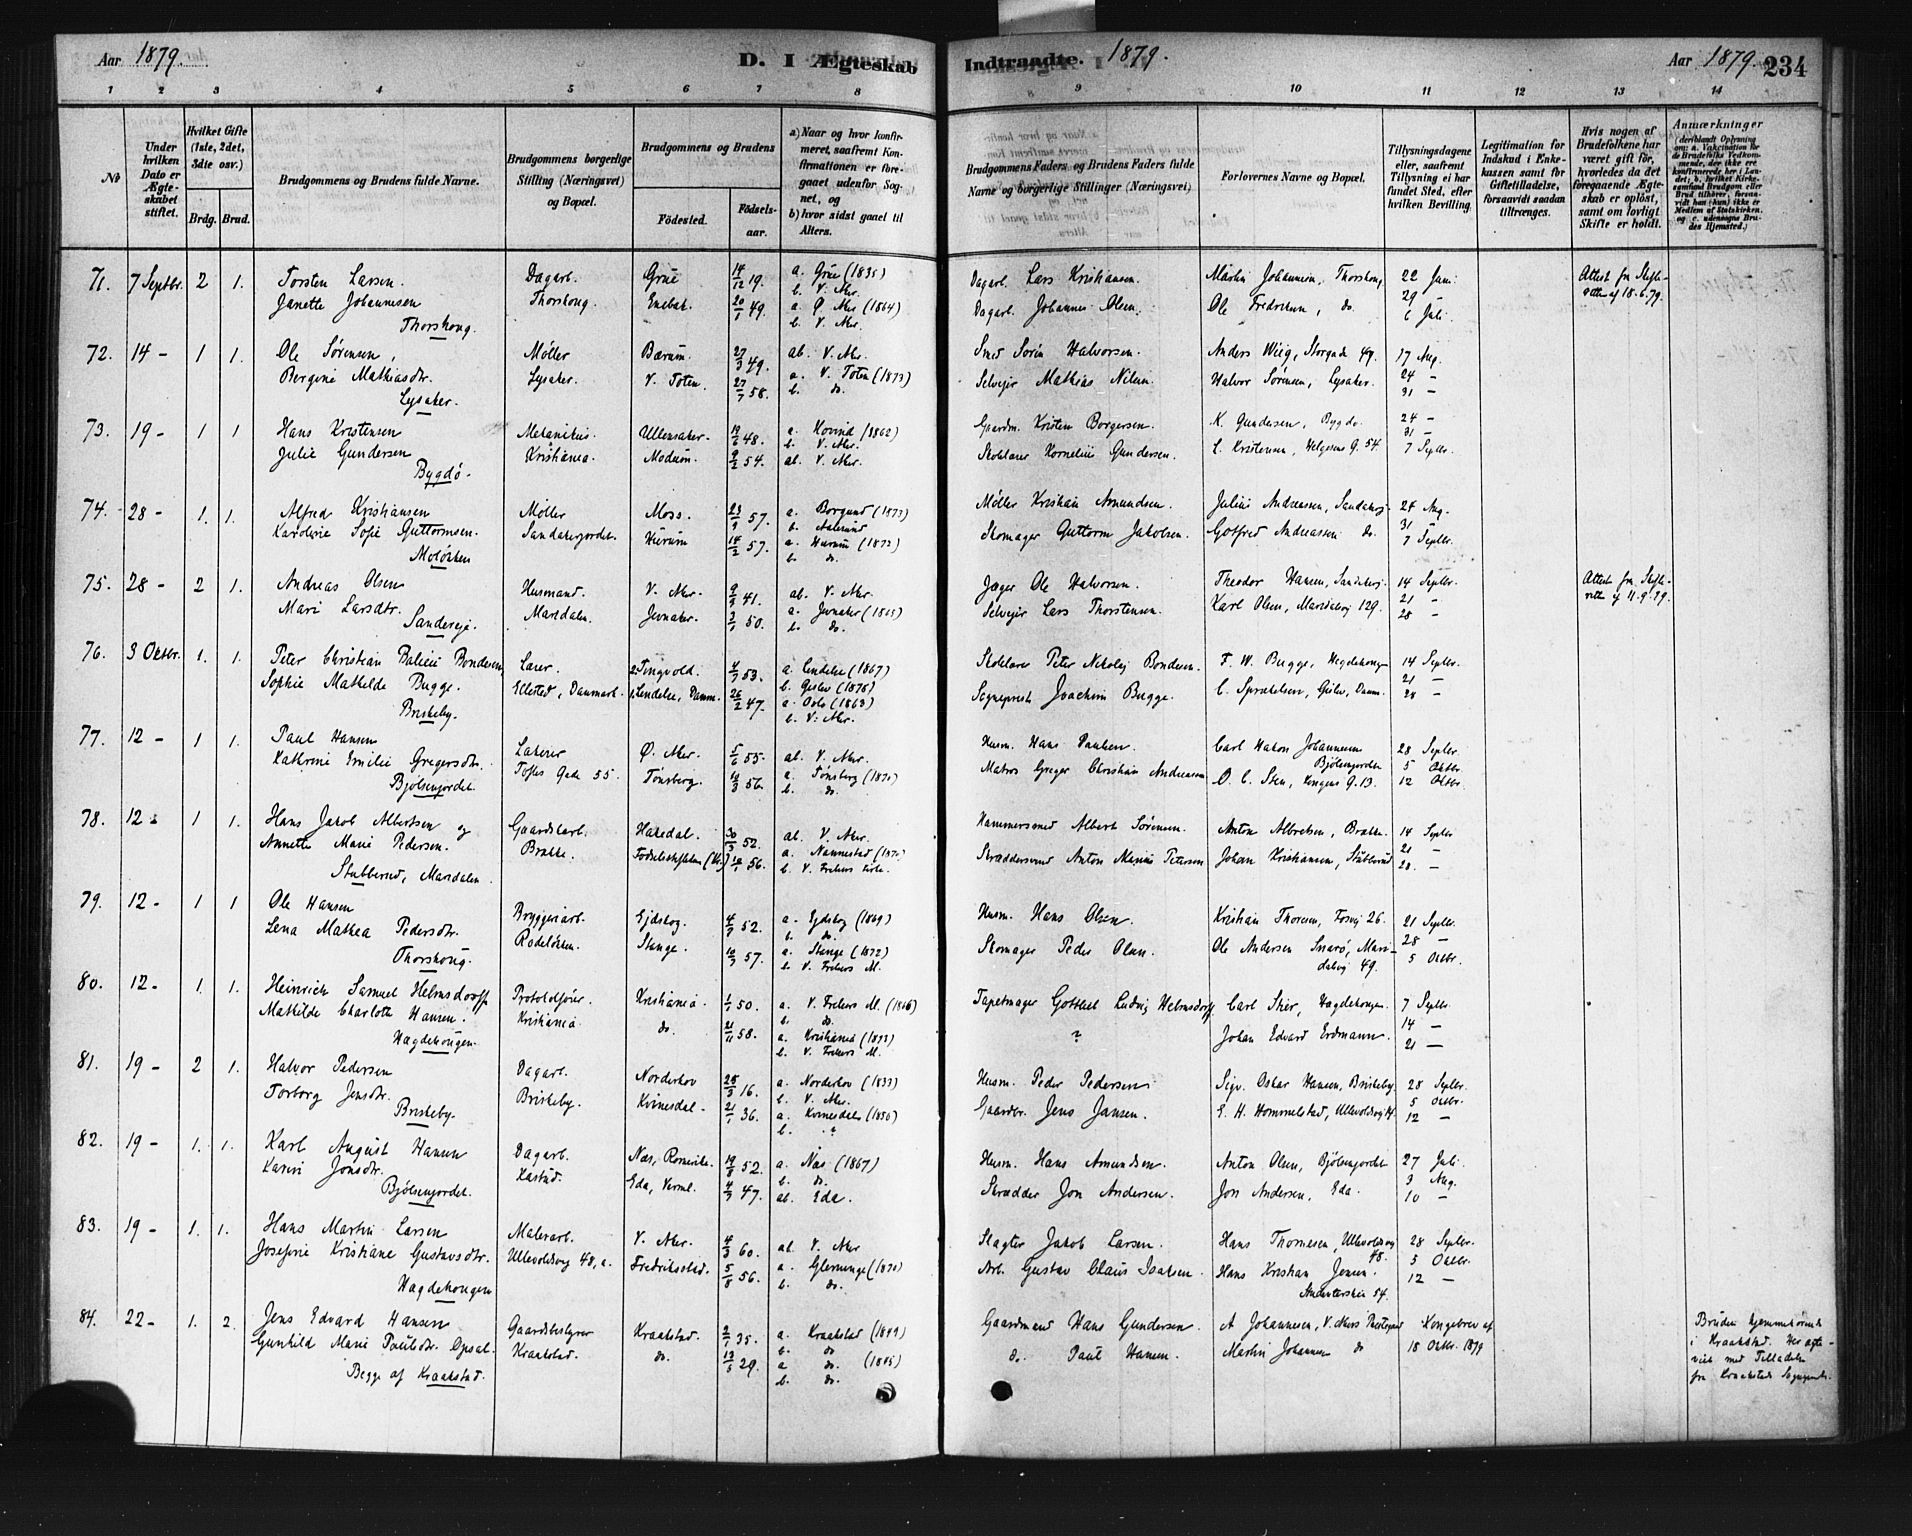 Aar 1879.
D. I Ægteskab
Indtraadte. 1879.
Aar 1879.
234
1 2 3 4 5 6 7 8
8 9 10 11 12 13 14
No
Under hvilken Dato er Ægteskabet stiftet.
Hvilket Gifte (1ste, 2det, 3die osv.)
Brdg. Brud.
Brudgommens og Brudens fulde Navne.
Brudgommens borgerlige Stilling (Næringsvei) og Bopæl.
Brudgommens og Brudens
Fødested.
Fødselsaar.
a) Naar og hvor konfirmeret, saafremt Konfirmationen er foregaaet udenfor Sognet, og
b) hvor sidst gaaet til Alters.
Brudgommens Faders og Brudens Faders fulde Navne og borgerlige Stillinger (Næringsvei)
Forlovernes Navne og Bopæl.
Tillysningsdagene eller, saafremt Tillysning ei har fundet Sted, efter hvilken Bevilling.
Legitimation for Indskud i Enkekassen samt for Giftetilladelse, forsaavidt saadan tiltrænges.
Hvis nogen af Brudefolkene har været gift før, hvorledes da det foregaaende Ægteskab er opløst, samt om lovligt Skifte er holdt.
Anmærkninger
71. 7 Septbr. 2 1. Torsten Larsen Dagarb. Grue 14/12 19. a. Grue (1835) Dagarb. Lars Kristiansen. Martin Johannesen, Thorshoug 22 Juni
b. V. Aker.
Janette Johannesen Thorshoug. Enebak. 20/1 49. a. Ø. Aker (1864) Dagarb. Johannes Olsen. Ole Fredriksen, do. 29 –
Thorshoug. b. V. Aker. 6 Juli
Attest fra Skifteretten af 18.6.79.
72. 14 – 1 1. Ole Sørensen, Møller Bærum. 27/3 49. ab. V. Aker. Smed Sørin Halvorsen. Anders Wiig, Storgade 49. 17 Aug.
Bergine Mathiasdtr. Lysaker. V. Toten. 27/7 58. a. V. Toten (1873) Selveier Mathias Nilsen. Halvor Sørensen, Lysaker. 24 –
Lysaker. b. do. 31 –
73. 19 – 1 1 Hans Kristensen Mekanikus. Ullensaker. 19/6 48. a. Hovind (1862) Gaardm. Kristen Borgersen. K. Gundersen, Bygdø. 24 –
b. V. Aker. 31 –
Julie Gundersen Kristiania. Modum. 9/2 54. ab. V. Aker. Skolelærer Kornelius Gundersen. C. Kristensen, Helgesens G. 54. 7 Septbr.
Bygdø.
74. 28 – 1. 1. Alfred Kristiansen Møller Moss. 23/9 57. a. Borgund (1873) Møller Kristian Amundsen. Julius Andreassen, Sandakerj. 24 Aug.
b. Aalesund 31 –
Karoline Sofie Guttormsen. Sandakerjordet. Hurum 14/2 57. a. Hurum (1872) Skomager Guttorm Jakobsen. Gotfred Andreassen do. 7 Septbr.
Moløkken b. do.
75. 28 – 2 1. Andreas Olsen Husmand. V. Aker. 9/9 41. ab. V. Aker. Jæger Ole Halvorsen. Theodor Hansen, Sandakerj. 14 Septbr.
Mari Larsdtr. Maridalen. Jevnaker. 3/1 50. a. Jevnaker (1865) Selveier Lars Thorstensen. Karl Olsen, Maridalsvj 129. 21 –
Sandereje. b. do. 28 –
Attest fra Skifteretten af 11.9.79.
76. 3 Oktbr. 1. 1. Peter Christian Bondesen Lærer. 2. Tingvold. 4/7 53. a. Lendelse (1867) Skolelærer Peter Nikolaj Bondesen. F. W. Bugge, Hegdehougen 14 Septbr.
b. Gislev (1878) 21 –
Sophie Mathilde Bugge. Ellested, Danmark. 1. Lendelse, Danm. 26/2 47. a. Oslo (1863) Sogneprest Joachim Bugge. C. Sprækelsen, Gislev, Danm. 28 –
Briskeby. b. V. Aker.
77. 12 – 1 1. Paul Hansen Lakerer Ø. Aker. 5/6 55. ab. V. Aker. Husm. Hans Paulsen. Carl Hakon Johannesen 28 Septbr.
Bjølsenjordet 5 Oktbr.
Kathrine Emilie Gregersdtr. Toftes Gade 55. Tønsberg. 10/3 56. a. Tønsberg (1870) Matros Greger Christian Andreassen O. C. Sten, Kongens G. 13. 12 Oktbr.
Bjølsenjordet. b. do.
78. 12 – 1 1. Hans Jakob Albertsen og Gaardsarb. Hakedal. 30/3 52. ab. V. Aker. Hammersmed Albert Sørensen. Anton Albretsen, Brække. 14 Septbr
Annette Marie Pedersen. Brække. Fødselsstiftelsen (Kr.) 56. a. Nannestad (1870) Skræddersvend Anton Marius Petersen Johan Kristiansen, Stubberud 21 –
Stubberud, Maridalen. b. V. Frelsers Kirke. 28. –
79. 12 – 1 1 Ole Hansen Bryggeriarb. Ejdskog. 4/7 52. a. Ejdskog (1869) Husm. Hans Olsen. Kristian Thoresen, Fosvj 26. 21 Septbr.
b. do. 28 –
Lena Mathea Pedersdtr. Rodeløkken. Stange. 10/3 57. a. Stange (1872) Skomager Peder Olsen. Ole Andersen Snarø, Maridalsvj 49. 5 Oktbr.
Thorshoug. b. V. Frelsers M.
80. 12 – 1. 1. Heinrich Samuel Helmsdorff Protokolfører. Kristiania. 1/1 50. a. V. Frelsers M. (1866) Tapetmager Gottlieb Ludvig Helmsdorff. Carl Skar, Hægdehougen. 7 Septbr.
b. do. 14 –
Mathilde Charlotte Hansen. Kristiania do. 21/11 58. a. Kristiania (1873) ? Johan Edvard Erdmann. 21 –
Hægdehougen. b. V. Frelsers M.
81. 19 – 2 1. Halvor Pedersen Dagarb. Norderhov 28/3 16. a. Norderhov (1833) Husm. Peder Pedersen Sigv. Oskar Hansen, Briskeby. 28 Septbr.
b. V. Aker. 5 Oktbr.
Torborg Jensdtr. Briskeby. Kvinesdal. 21/1 36. a. Kvinesdal (1850) Gaardbr. Jens Jansen. E. H. Hommelstad, Ullevoldsvj 12 –
Briskeby. b. ?
82. 19 – 1. 1. Karl August Hansen Dagarb. Næs, Romerike. 19/8 52. a. Næs (1867) Husm. Hans Amundsen. Anton Olsen, Bjølsenjordet 27 Juli.
b. do. 3 Aug.
Karin Jonsdtr. Kastad. Eda, Verml. 4/9 47. ab. Eda. Skrædder Jon Andersen. Jon Andersen, Eda. 10 –
Bjølsenjordet.
83. 19 – 1. 1. Hans Martin Larsen Malerarb. V. Aker. 4/3 60. ab. V. Aker Slagter Jakob Larsen. Hans Thomesen, Ullevoldsvj 48. 28 Septbr.
Josefine Kristiane Gustavsdtr. Ullevoldsvej 48, a. Fredrikstad. 5/8 56. a. Glemminge (1870) Arb. Gustav Claus Isaksen. Hans Kristian Jensen. 5 Oktbr.
Hægdehougen b. do. 54. 12 –
84. 22 – 1. 2. Jens Edvard Hansen Gaardbestyrer Kraakstad. 2/1 35. a. Kraakstad (1849) Gaardmand Hans Gundersen. A Johannesen, V. Akers Prestegaard Kongebrev af
b. do
Gunhild Marie Paulsdtr. Opsal. Kraakstad. do. 13/5 29. a do. (1845) do. Paul Hansen. Martin Johannesen do 18 Oktbr. 1879
Begge af Kraakstad. b. do.
Bruden hjemmehørende i Kraakstad. Her ægteviet med Tilladelse fra Kraakstads Sogneprest.